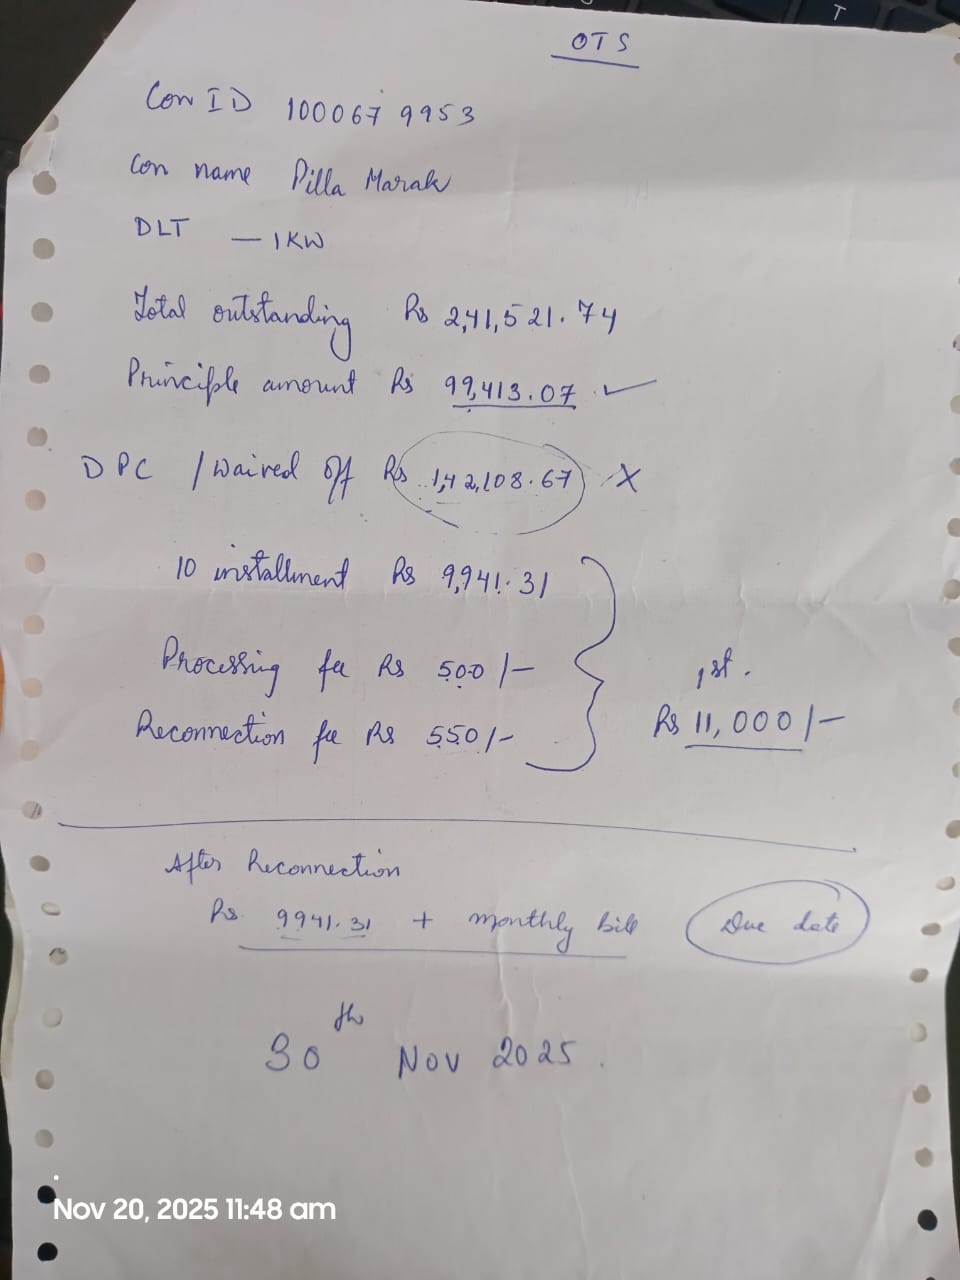 OTS
Con ID 1000679953
Con name Pilla Marak
DLT — 1KW
Total outstanding Rs 2,41,521.74
Principle amount Rs 99,413.07 ✓
DPC / Waived off Rs 1,42,108.67 X
10 installment Rs 9,941.31
Processing fee Rs 500/-
Reconnection fee Rs 550/-
1st.
Rs 11,000/-
After Reconnection
Rs. 9941.31 + monthly bill Due date
30th Nov 2025.
Nov 20, 2025 11:48 am